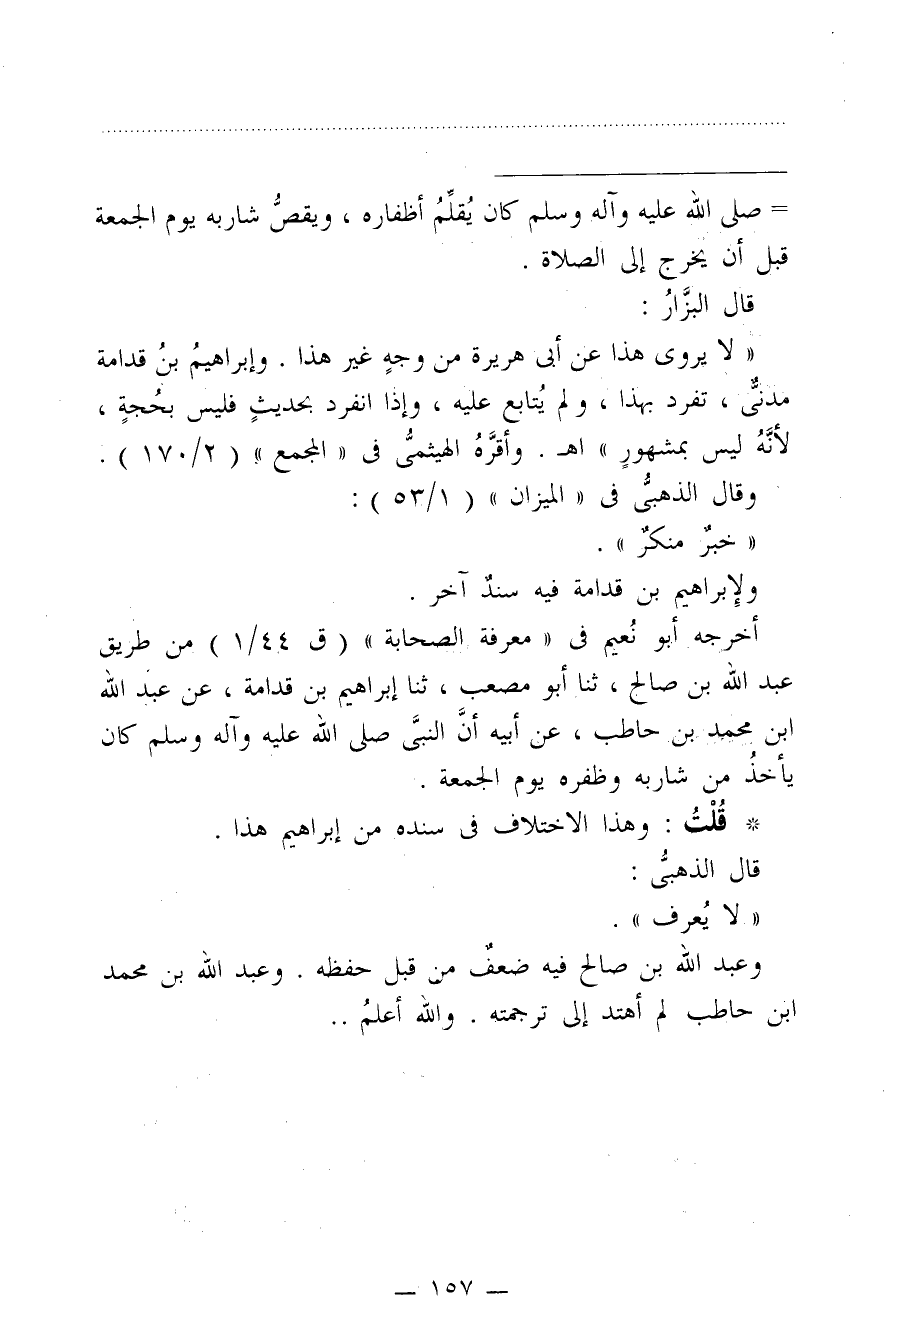 = صلى الله عليه وآله وسلم كان يُقلِّمُ أظفاره ، ويقصُّ شاربه يوم الجمعة
قبل أن يخرج إلى الصلاة .
قال البزَّارُ :
« لا يروى هذا عن أبى هريرة من وجهٍ غير هذا . وإبراهيمُ بنُ قدامة
مدنىٌّ ، تفرد بهذا ، ولم يُتابع عليه ، وإذا انفرد بحديثٍ فليس بحُجةٍ ،
لأنَّهُ ليس بمشهورٍ » اهـ . وأقرَّهُ الهيثمىُّ فى « المجمع » ( ٢/١٧٠ ) .
وقال الذهبىُّ فى « الميزان » ( ١/٥٣ ) :
« خبرٌ منكرٌ » .
ولإبراهيم بن قدامة فيه سندٌ آخر .
أخرجه أبو نُعيم فى « معرفة الصحابة » ( ق ١/٤٤ ) من طريق
عبد الله بن صالح ، ثنا أبو مصعب ، ثنا إبراهيم بن قدامة ، عن عبد الله
ابن محمد بن حاطب ، عن أبيه أنَّ النبىَّ صلى الله عليه وآله وسلم كان
يأخذُ من شاربه وظفره يوم الجمعة .
* قُلْتُ : وهذا الاختلاف فى سنده من إبراهيم هذا .
قال الذهبىُّ :
« لا يُعرف » .
وعبد الله بن صالح فيه ضعفٌ من قبل حفظه . وعبد الله بن محمد
ابن حاطب لم أهتد إلى ترجمته . والله أعلمُ ..
— ١٥٧ —